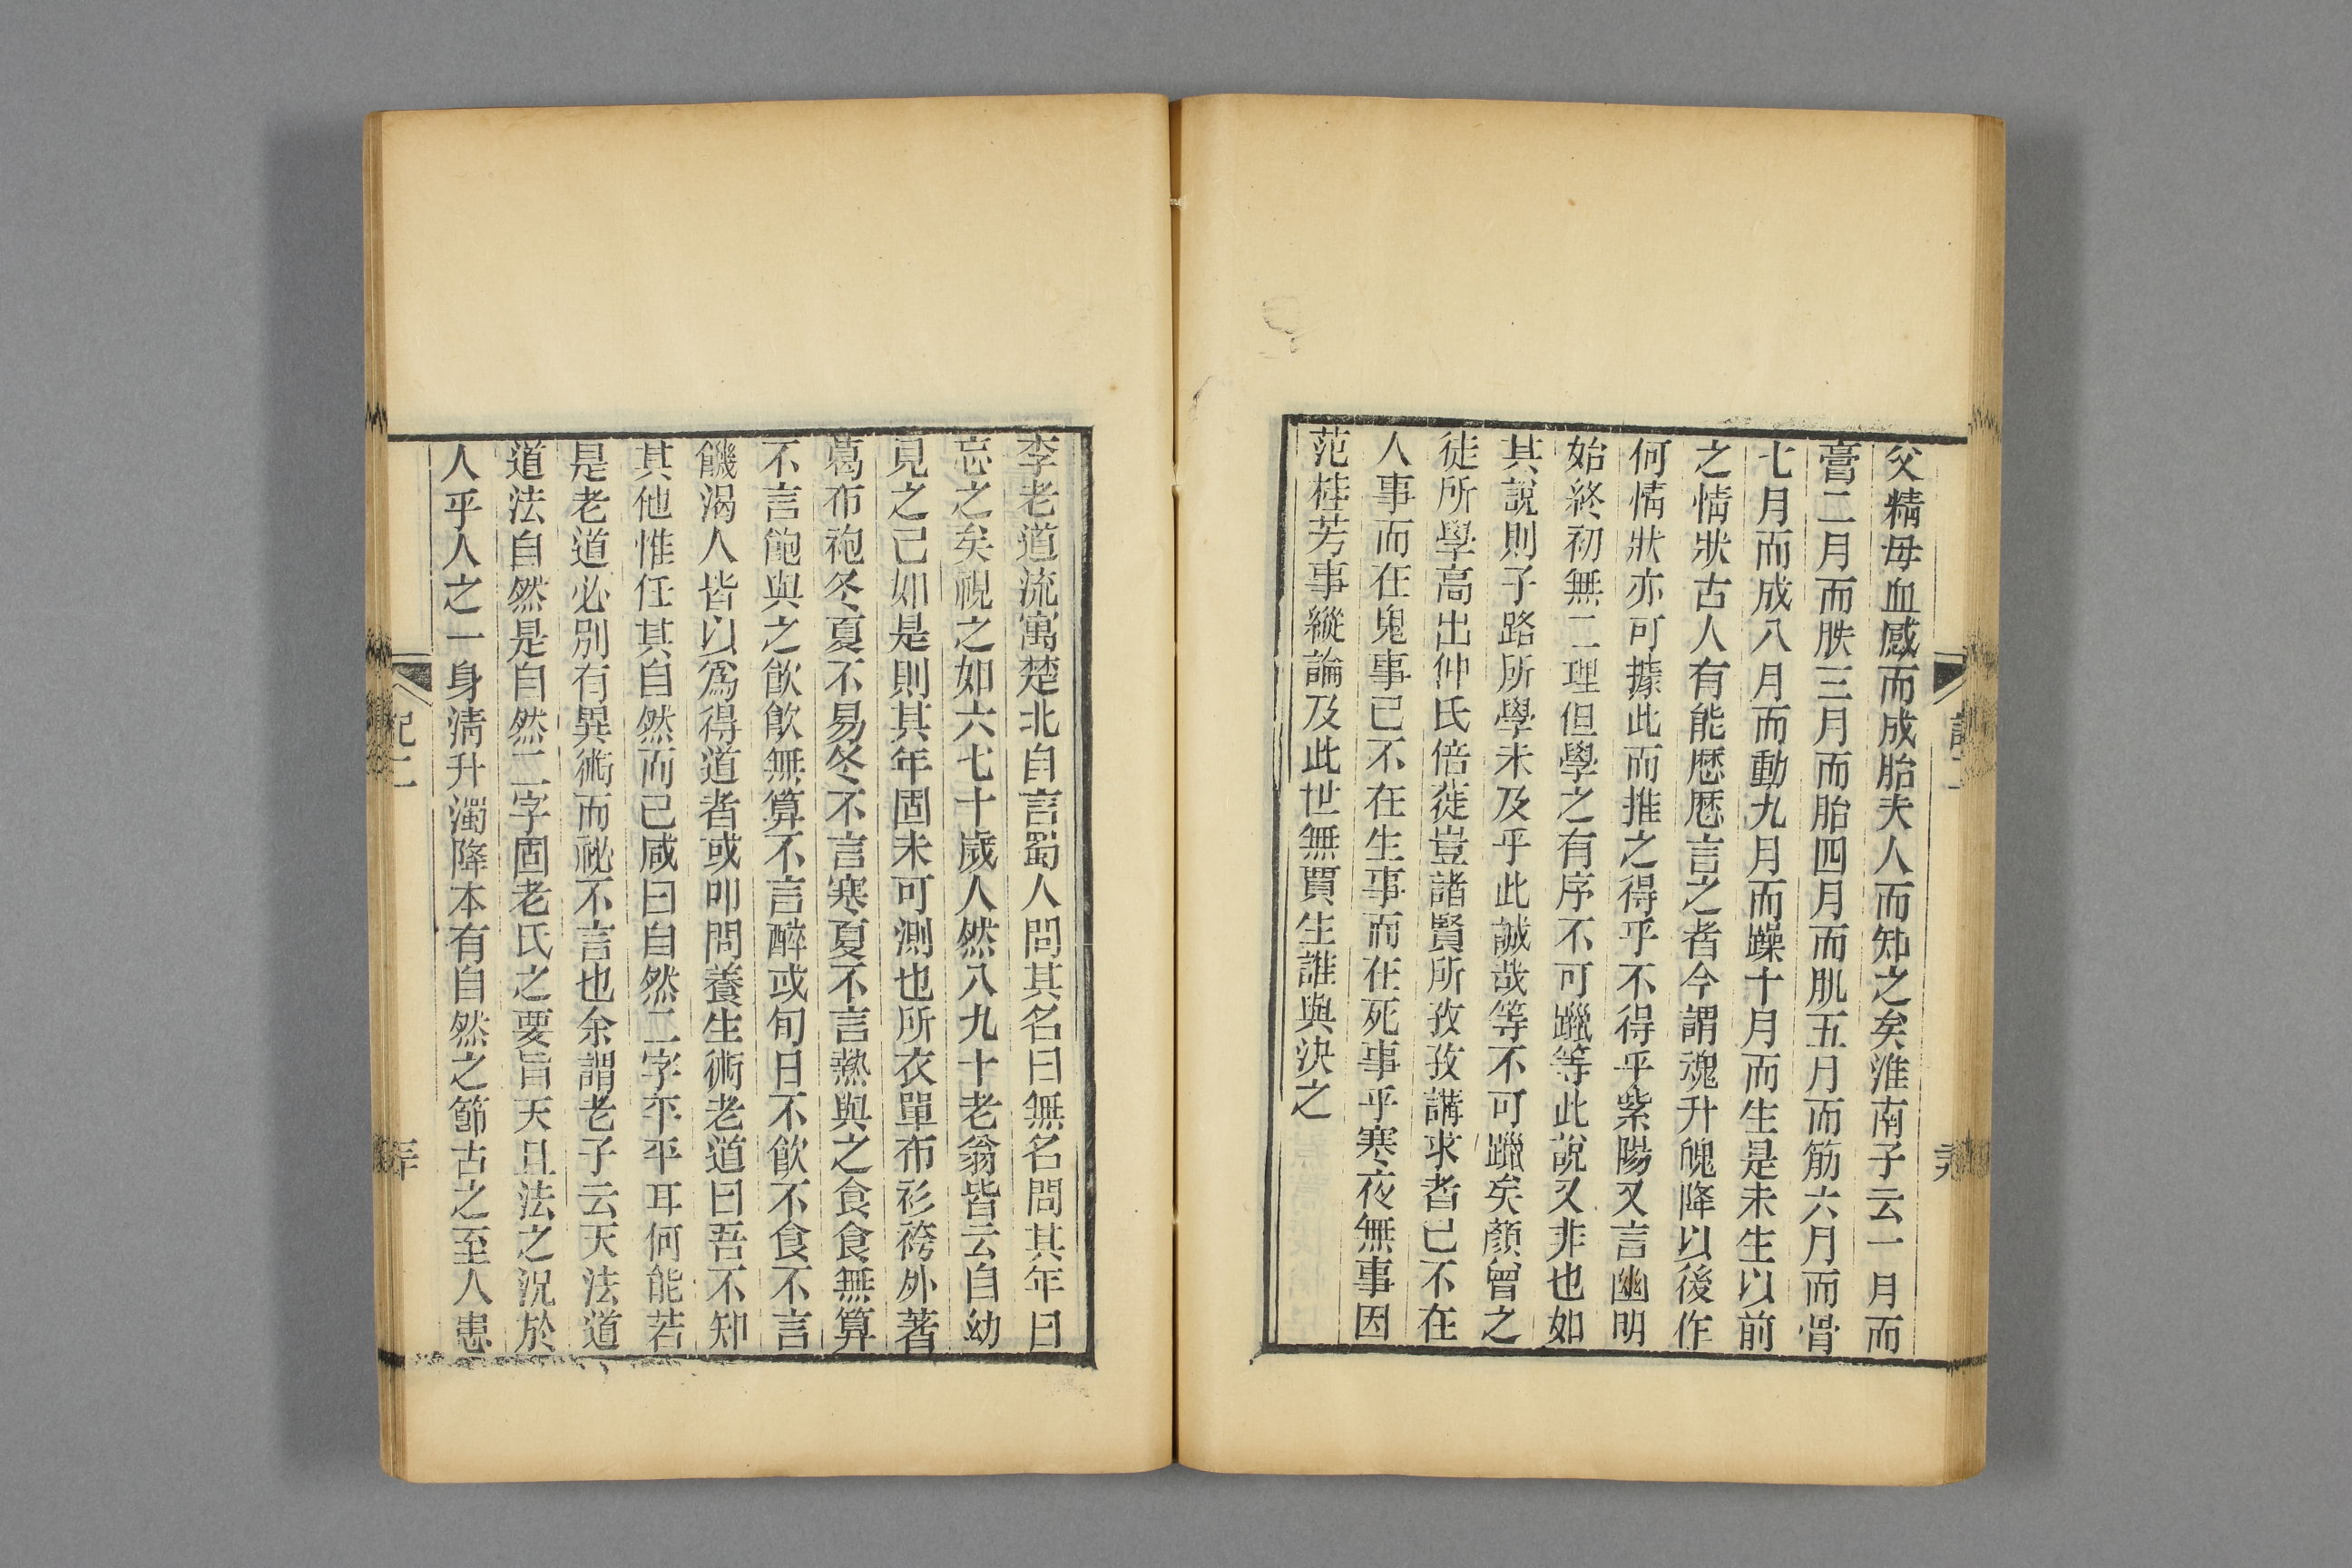 父精母血感而成胎夫人而知之矣淮南子云一月而
膏二月而胅三月而胎四月而肌五月而筋六月而骨
七月而成八月而動九月而躁十月而生是未生以前
之情狀古人有能歷歷言之者今謂魂升魄降以後作
何情狀亦可據此而推之得乎不得乎紫陽又言幽明
始終初無二理但學之有序不可躐等此說又非也如
其說則子路所學未及乎此誠哉等不可躐矣顏曾之
徒所學高出仲氏倍蓰豈諸賢所孜孜講求者已不在
人事而在鬼事已不在生事而在死事乎寒夜無事因
范桂芳事縱論及此世無賈生誰與決之
李老道流寓楚北自言蜀人問其名曰無名問其年曰
忘之矣視之如六七十歲人然八九十老翁皆云自幼
見之已如是則其年固未可測也所衣單布衫袴外著
葛布袍冬夏不易冬不言寒夏不言熱與之食食無算
不言飽與之飲飲無算不言醉或旬日不飲不食不言
饑渴人皆以爲得道者或叩問養生術老道曰吾不知
其他惟任其自然而已咸曰自然二字平平耳何能若
是老道必別有異術而祕不言也余謂老子云天法道
道法自然是自然二字固老氏之要旨天且法之況於
人乎人之一身清升濁降本有自然之節古之至人患
記二